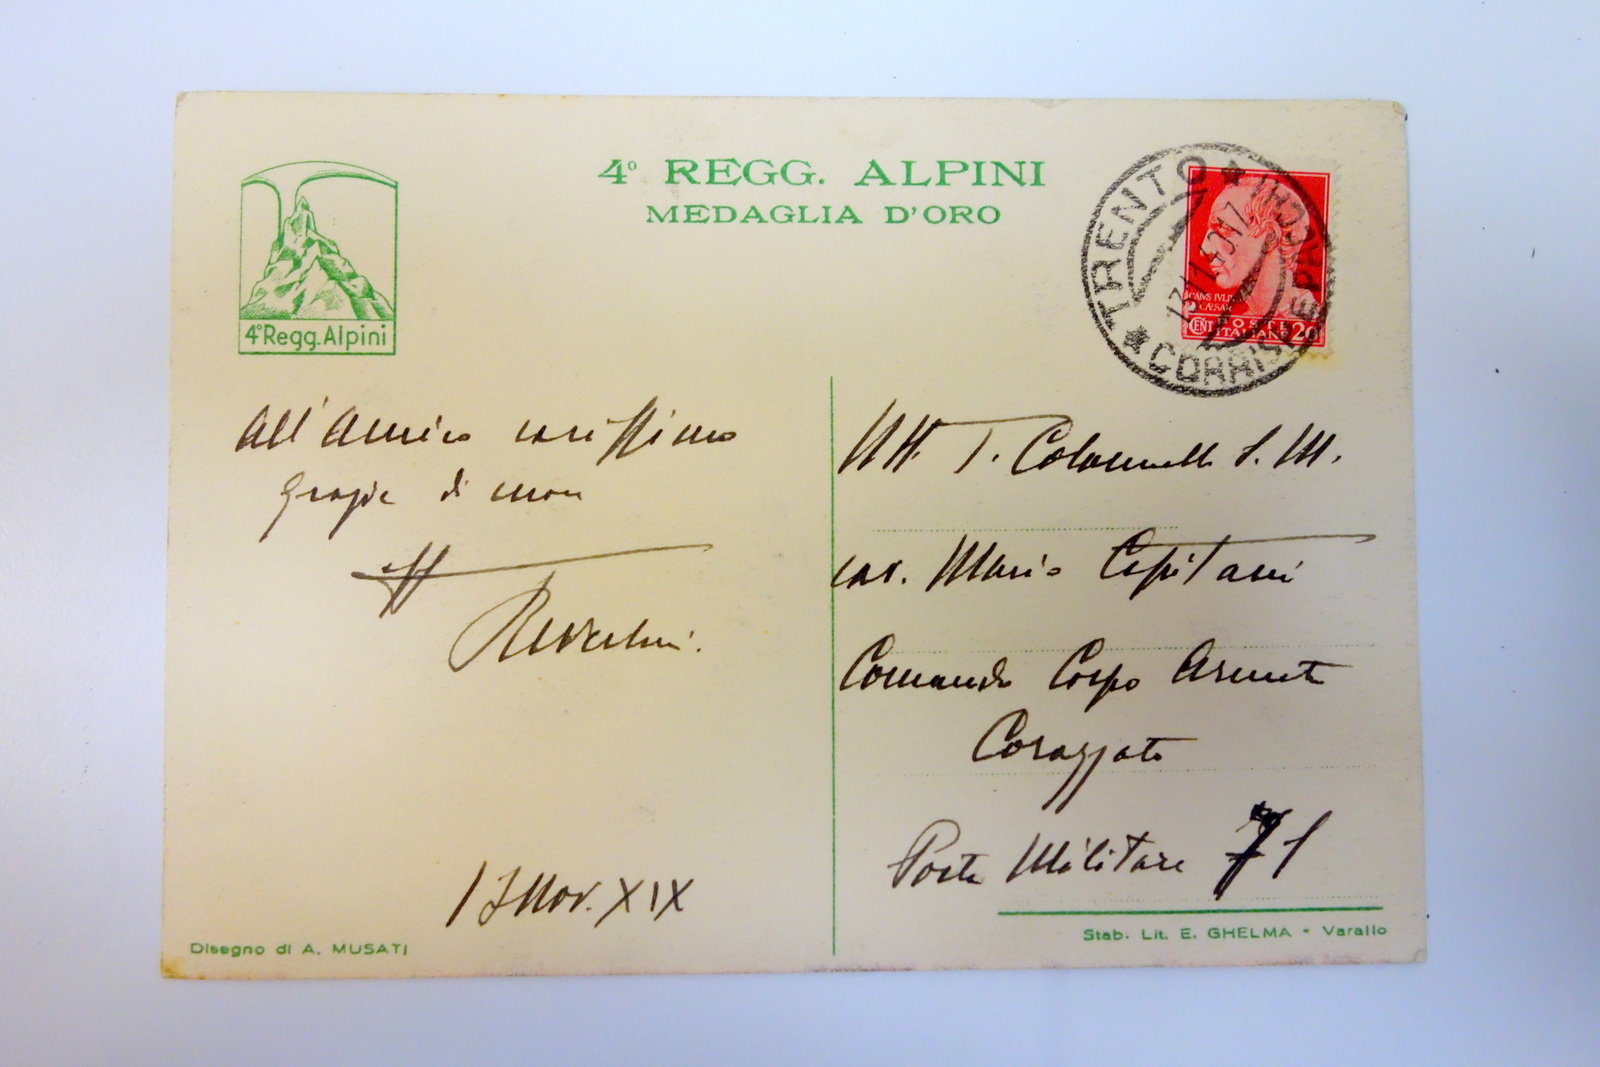 4º REGG. ALPINI
MEDAGLIA D'ORO
4º Regg. Alpini
TRENTO
CORRISP. E PACCHI
CAIVS IVLIVS
CAESAR
CENT. 20
POSTE
ITALIANE
All'Amico carissimo
grazie di cuore
13 Nov. XIX
Disegno di A. MUSATI
T. Colonnello S. M.
cav. Mario Capitani
Comando Corpo Armata
Corazzato
Posta Militare 71
Stab. Lit. E. GHELMA - Varallo